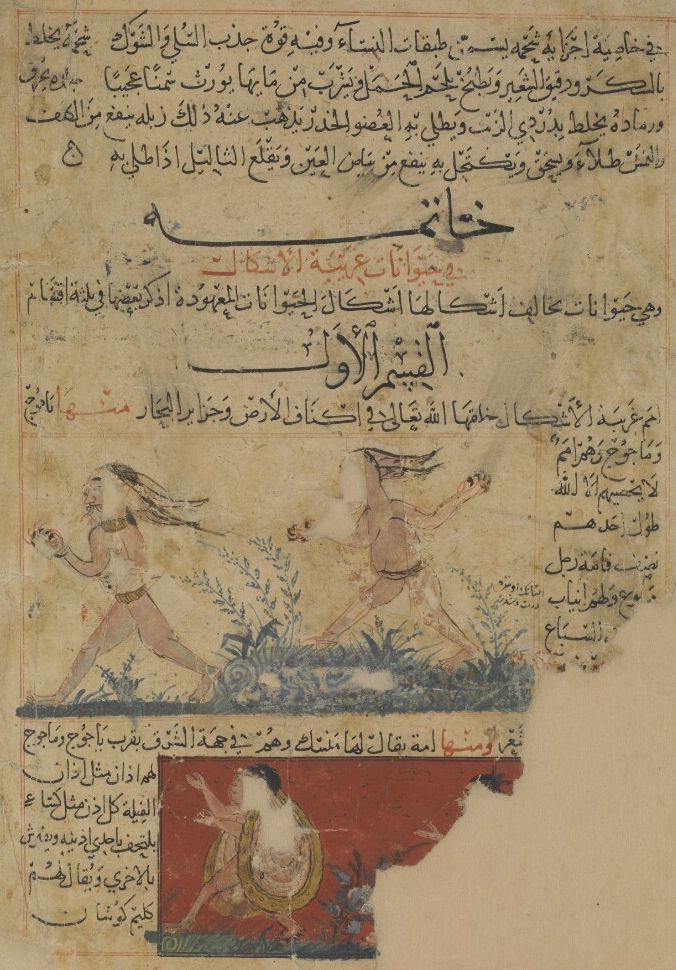 في خاصية اجزايه شحمه يسمن طبقات النساء وفيه قوة جذب السلي والشوك شحمه يخلط
بالسكر ودقيق الشعير ويطبخ بلحم الحمل ويشرب من مايها يورث سمنا عجيبا
ورماده يخلط بدردي الزيت ويطلي به العضو الخدر يذهب عنه ذلك زبله ينفع من الكلف
والنمش طلاء ويسحق ويكتحل به ينفع من بياض العين ويقلع الثاليل اذا طلي به
خاتمه
في حيوانات غريبة الاشكال
وهي حيوانات يخالف اشكالها اشكال الحيوانات المعهودة اذكر بعضها في ثلثة اقسام
القسم الاول
امم غريبة الاشكال خلقها الله تعالى في اكناف الارض وجزاير البحار منها ياجوج
وماجوج وهم امم
لا يحصيهم الا الله
طول احدهم
نصف قامة رجل
ولهم انياب
السباع
ومنها امة يقال لها منسك وهم في جهة الشرق بقرب ياجوج وماجوج
لهم اذان مثل اذان
الفيلة كل اذن مثل كساء
يلتحف باحدي اذنيه ويفترش
بالاخري ويقال لهم
كليم كوشان